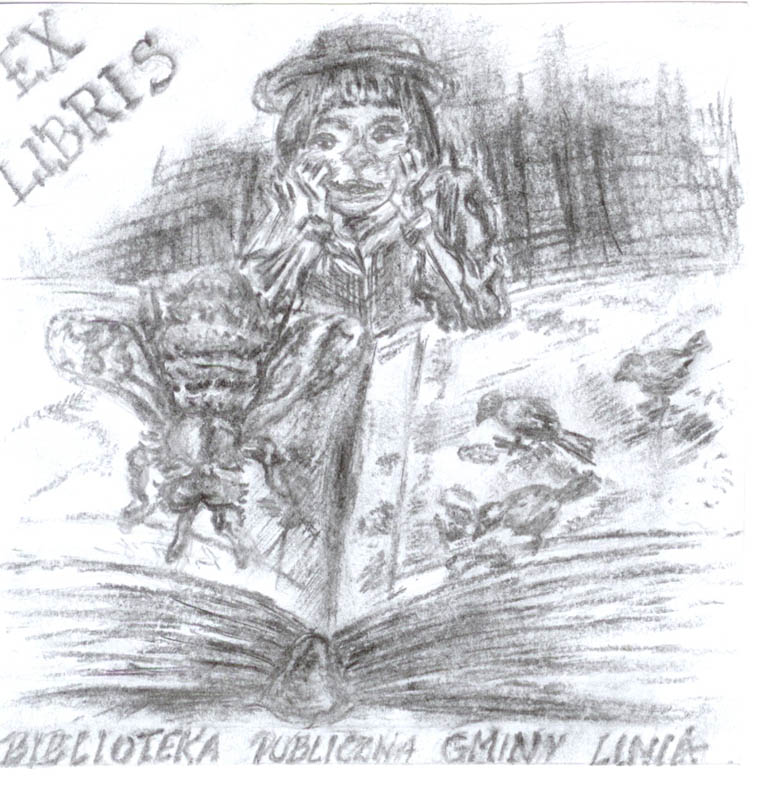 EX
LIBRIS
BIBLIOTEKA PUBLICZNA GMINY LINIA